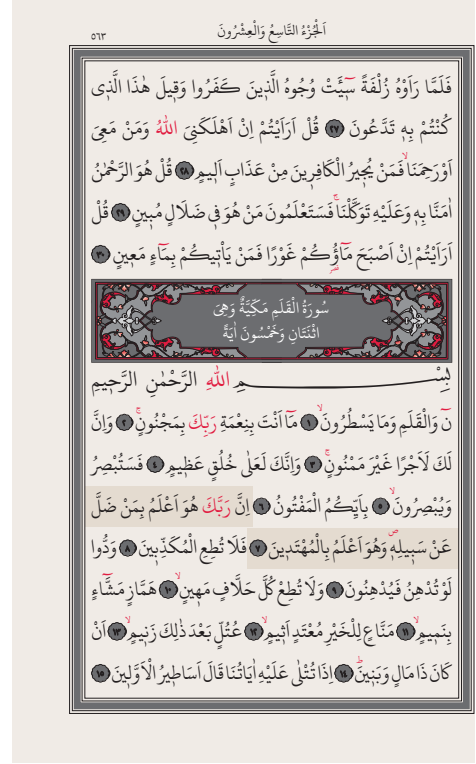 اَلْجُزْءُ التَّاسِعُ وَالْعِشْرُونَ
٥٦٣
فَلَمَّا رَاَوْهُ زُلْفَةً سٓيـَٔتْ وُجُوهُ الَّذٖينَ كَفَرُوا وَقٖيلَ هٰذَا الَّذٖى
كُنْتُمْ بِهٖ تَدَّعُونَ ﴿٢٧﴾ قُلْ اَرَاَيْتُمْ اِنْ اَهْلَكَنِىَ اللّٰهُ وَمَنْ مَعِىَ
اَوْ رَحِمَنَاۙ فَمَنْ يُجٖيرُ الْكَافِرٖينَ مِنْ عَذَابٍ اَلٖيمٍ ﴿٢٨﴾ قُلْ هُوَ الرَّحْمٰنُ
اٰمَنَّا بِهٖ وَعَلَيْهِ تَوَكَّلْنَاۚ فَسَتَعْلَمُونَ مَنْ هُوَ فٖى ضَلَالٍ مُبٖينٍ ﴿٢٩﴾ قُلْ
اَرَاَيْتُمْ اِنْ اَصْبَحَ مَٓاؤُ۬كُمْ غَوْرًا فَمَنْ يَأْتٖيكُمْ بِمَٓاءٍ مَعٖينٍ ﴿٣٠﴾
سُورَةُ الْقَلَمِ مَكِّيَّةٌ وَهِىَ
اثْنَتَانِ وَخَمْسُونَ اٰيَةً
بِسْمِ اللّٰهِ الرَّحْمٰنِ الرَّحٖيمِ
نٓ وَالْقَلَمِ وَمَا يَسْطُرُونَۙ ﴿١﴾ مَٓا اَنْتَ بِنِعْمَةِ رَبِّكَ بِمَجْنُونٍۚ ﴿٢﴾ وَاِنَّ
لَكَ لَاَجْرًا غَيْرَ مَمْنُونٍۚ ﴿٣﴾ وَاِنَّكَ لَعَلٰى خُلُقٍ عَظٖيمٍ ﴿٤﴾ فَسَتُبْصِرُ
وَيُبْصِرُونَۙ ﴿٥﴾ بِاَيِّكُمُ الْمَفْتُونُ ﴿٦﴾ اِنَّ رَبَّكَ هُوَ اَعْلَمُ بِمَنْ ضَلَّ
عَنْ سَبٖيلِهٖࣕ وَهُوَ اَعْلَمُ بِالْمُهْتَدٖينَ ﴿٧﴾ فَلَا تُطِعِ الْمُكَذِّبٖينَ ﴿٨﴾ وَدُّوا
لَوْ تُدْهِنُ فَيُدْهِنُونَ ﴿٩﴾ وَلَا تُطِعْ كُلَّ حَلَّافٍ مَهٖينٍۙ ﴿١٠﴾ هَمَّازٍ مَشَّٓاءٍ
بِنَمٖيمٍۙ ﴿١١﴾ مَنَّاعٍ لِلْخَيْرِ مُعْتَدٍ اَثٖيمٍۙ ﴿١٢﴾ عُتُلٍّ بَعْدَ ذٰلِكَ زَنٖيمٍۙ ﴿١٣﴾ اَنْ
كَانَ ذَا مَالٍ وَبَنٖينَؕ ﴿١٤﴾ اِذَا تُتْلٰى عَلَيْهِ اٰيَاتُنَا قَالَ اَسَاطٖيرُ الْاَوَّلٖينَ ﴿١٥﴾